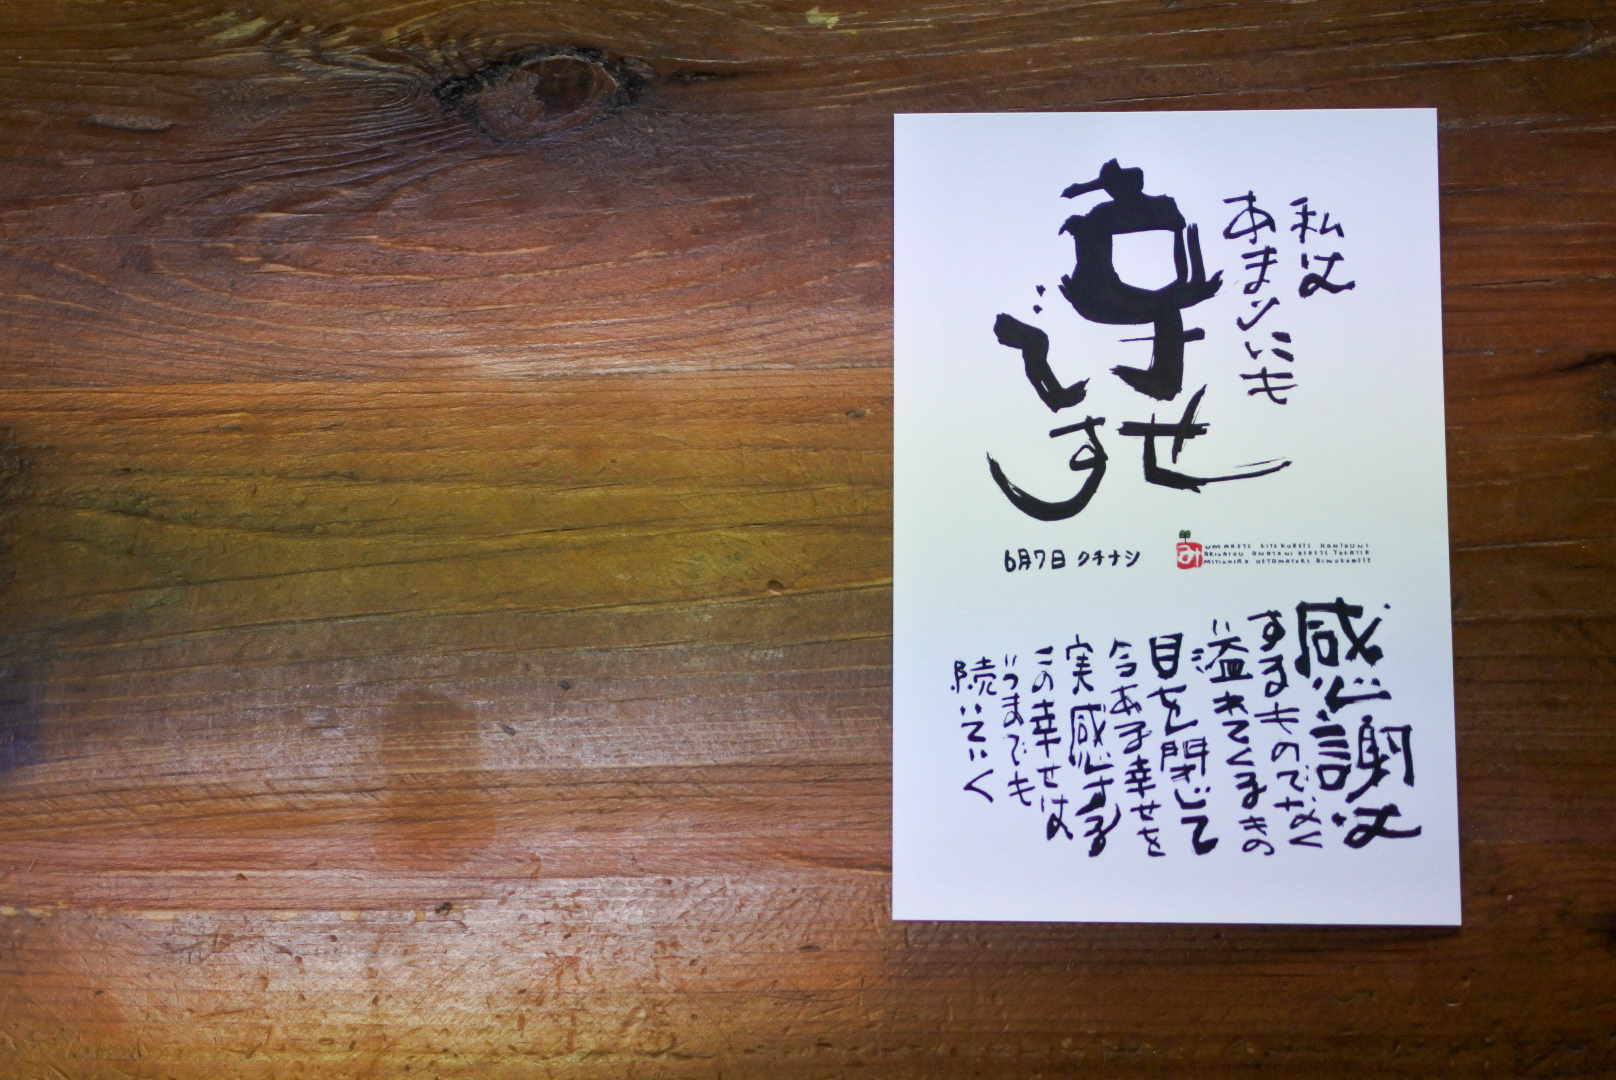 私は
あまりにも
幸せ
です
6月7日 クチナシ
み
UMARETE KITEKURETE HONTOUNI
ARIGATOU ANATANI DERETE
感謝は
するものでなく
溢れてくるもの
目を閉じて
今ある幸せを
実感する
この幸せは
いつまでも
続いていく